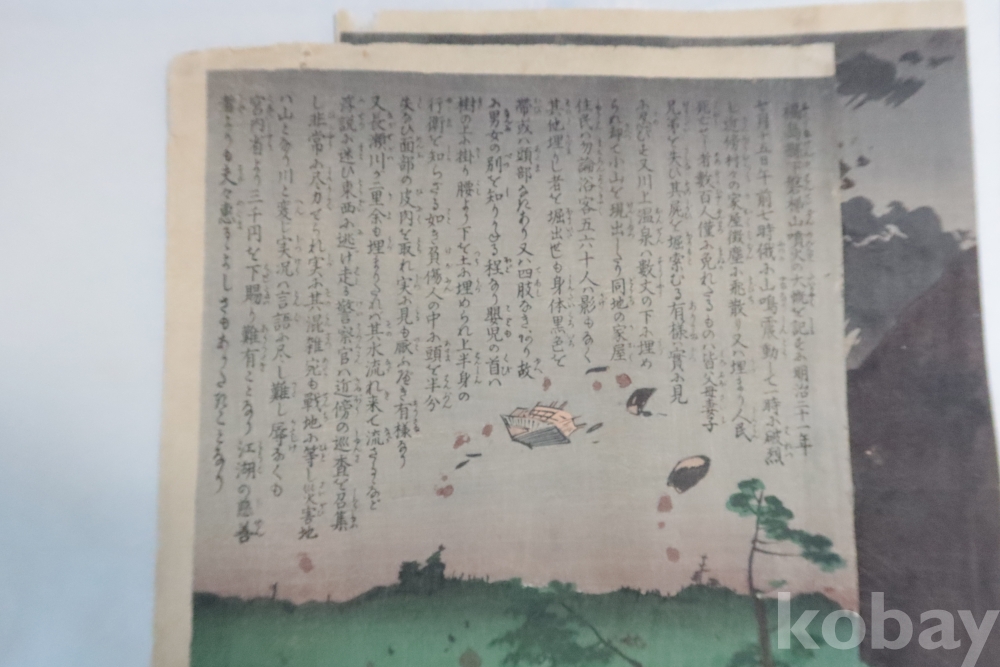 福島縣下磐梯山噴火の大概を記すに明治二十一年
七月十五日午前七時俄に山鳴震動して一時に破烈
し近傍村々の家屋微塵に飛散り又ハ埋まり人民
死亡する者数百人僅に免れたるものハ皆父母妻子
兄弟を失ひ其屍を堀索むる有様ハ実に見
に忍びず又川上温泉ハ数丈の下に埋め
られ却て小山を現出したり同地の家屋
住民ハ勿論浴客五六十人の影もなく
其他埋し者を堀出せバ身体黒色を
帯或ハ頭部なきあり又ハ四肢なきあり故
に男女の別を知りかぬる程なり嬰児の首ハ
樹の上に掛り腰より下を土に埋められ上半身の
行衛を知らざる如き負傷人の中に頭を半分
失ひ面部の皮肉を取れ実に見も厭ふべき有様なり
又長瀬川ハ二里余も埋まりたれバ其水流れ来て流さるるなど
浮説に迷ひ東西に逃け走る警察官ハ近傍の巡査を召集
し非常に尽力せられ実に其混雑宛も戦地に等し災害地
ハ山となり川と変じ実況ハ言語に尽し難し辱なくも
宮内省より三千円を下賜り難有ことなり江湖の慈善
者よりも夫々恵るるよしさもあるべきことなり
kobay